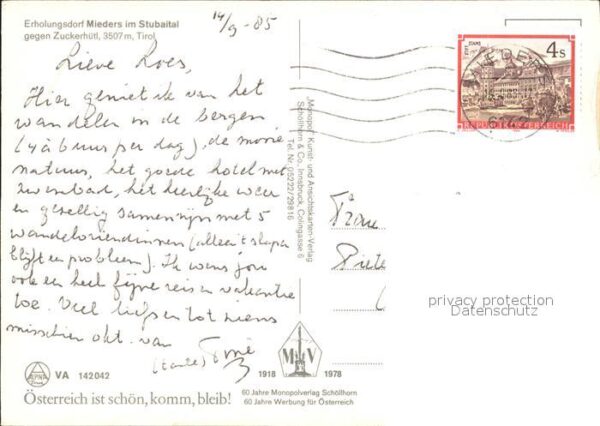 Erholungsdorf Mieders im Stubaital
gegen Zuckerhütl, 3507 m, Tirol
14/9-85
Lieve Loes,
Hier geniet ik van het
wandelen in de bergen
(4 à 6 uur per dag), de mooie
natuur, het goede hotel met
zwembad, het heerlijke weer
en gezellig samenzijn met 5
wandelvriendinnen (alleen 't slapen
blijft een probleem). Ik wens jou
ook een heel fijne reis en vakantie
toe. Veel liefs en tot ziens
misschien okt. van
(tante)
Monopol Kunst- und Ansichtskarten-Verlag
Schöllhorn & Co., Innsbruck, Colingasse 6
Tel. Nr. 05222/29816
4 S
STIFT STAMS
REPUBLIK ÖSTERREICH
MIEDERS
6142
Frau
Piete
privacy protection
Datenschutz
VA 142042
M V
1918 1978
Österreich ist schön, komm, bleib!
60 Jahre Monopolverlag Schöllhorn
60 Jahre Werbung für Österreich